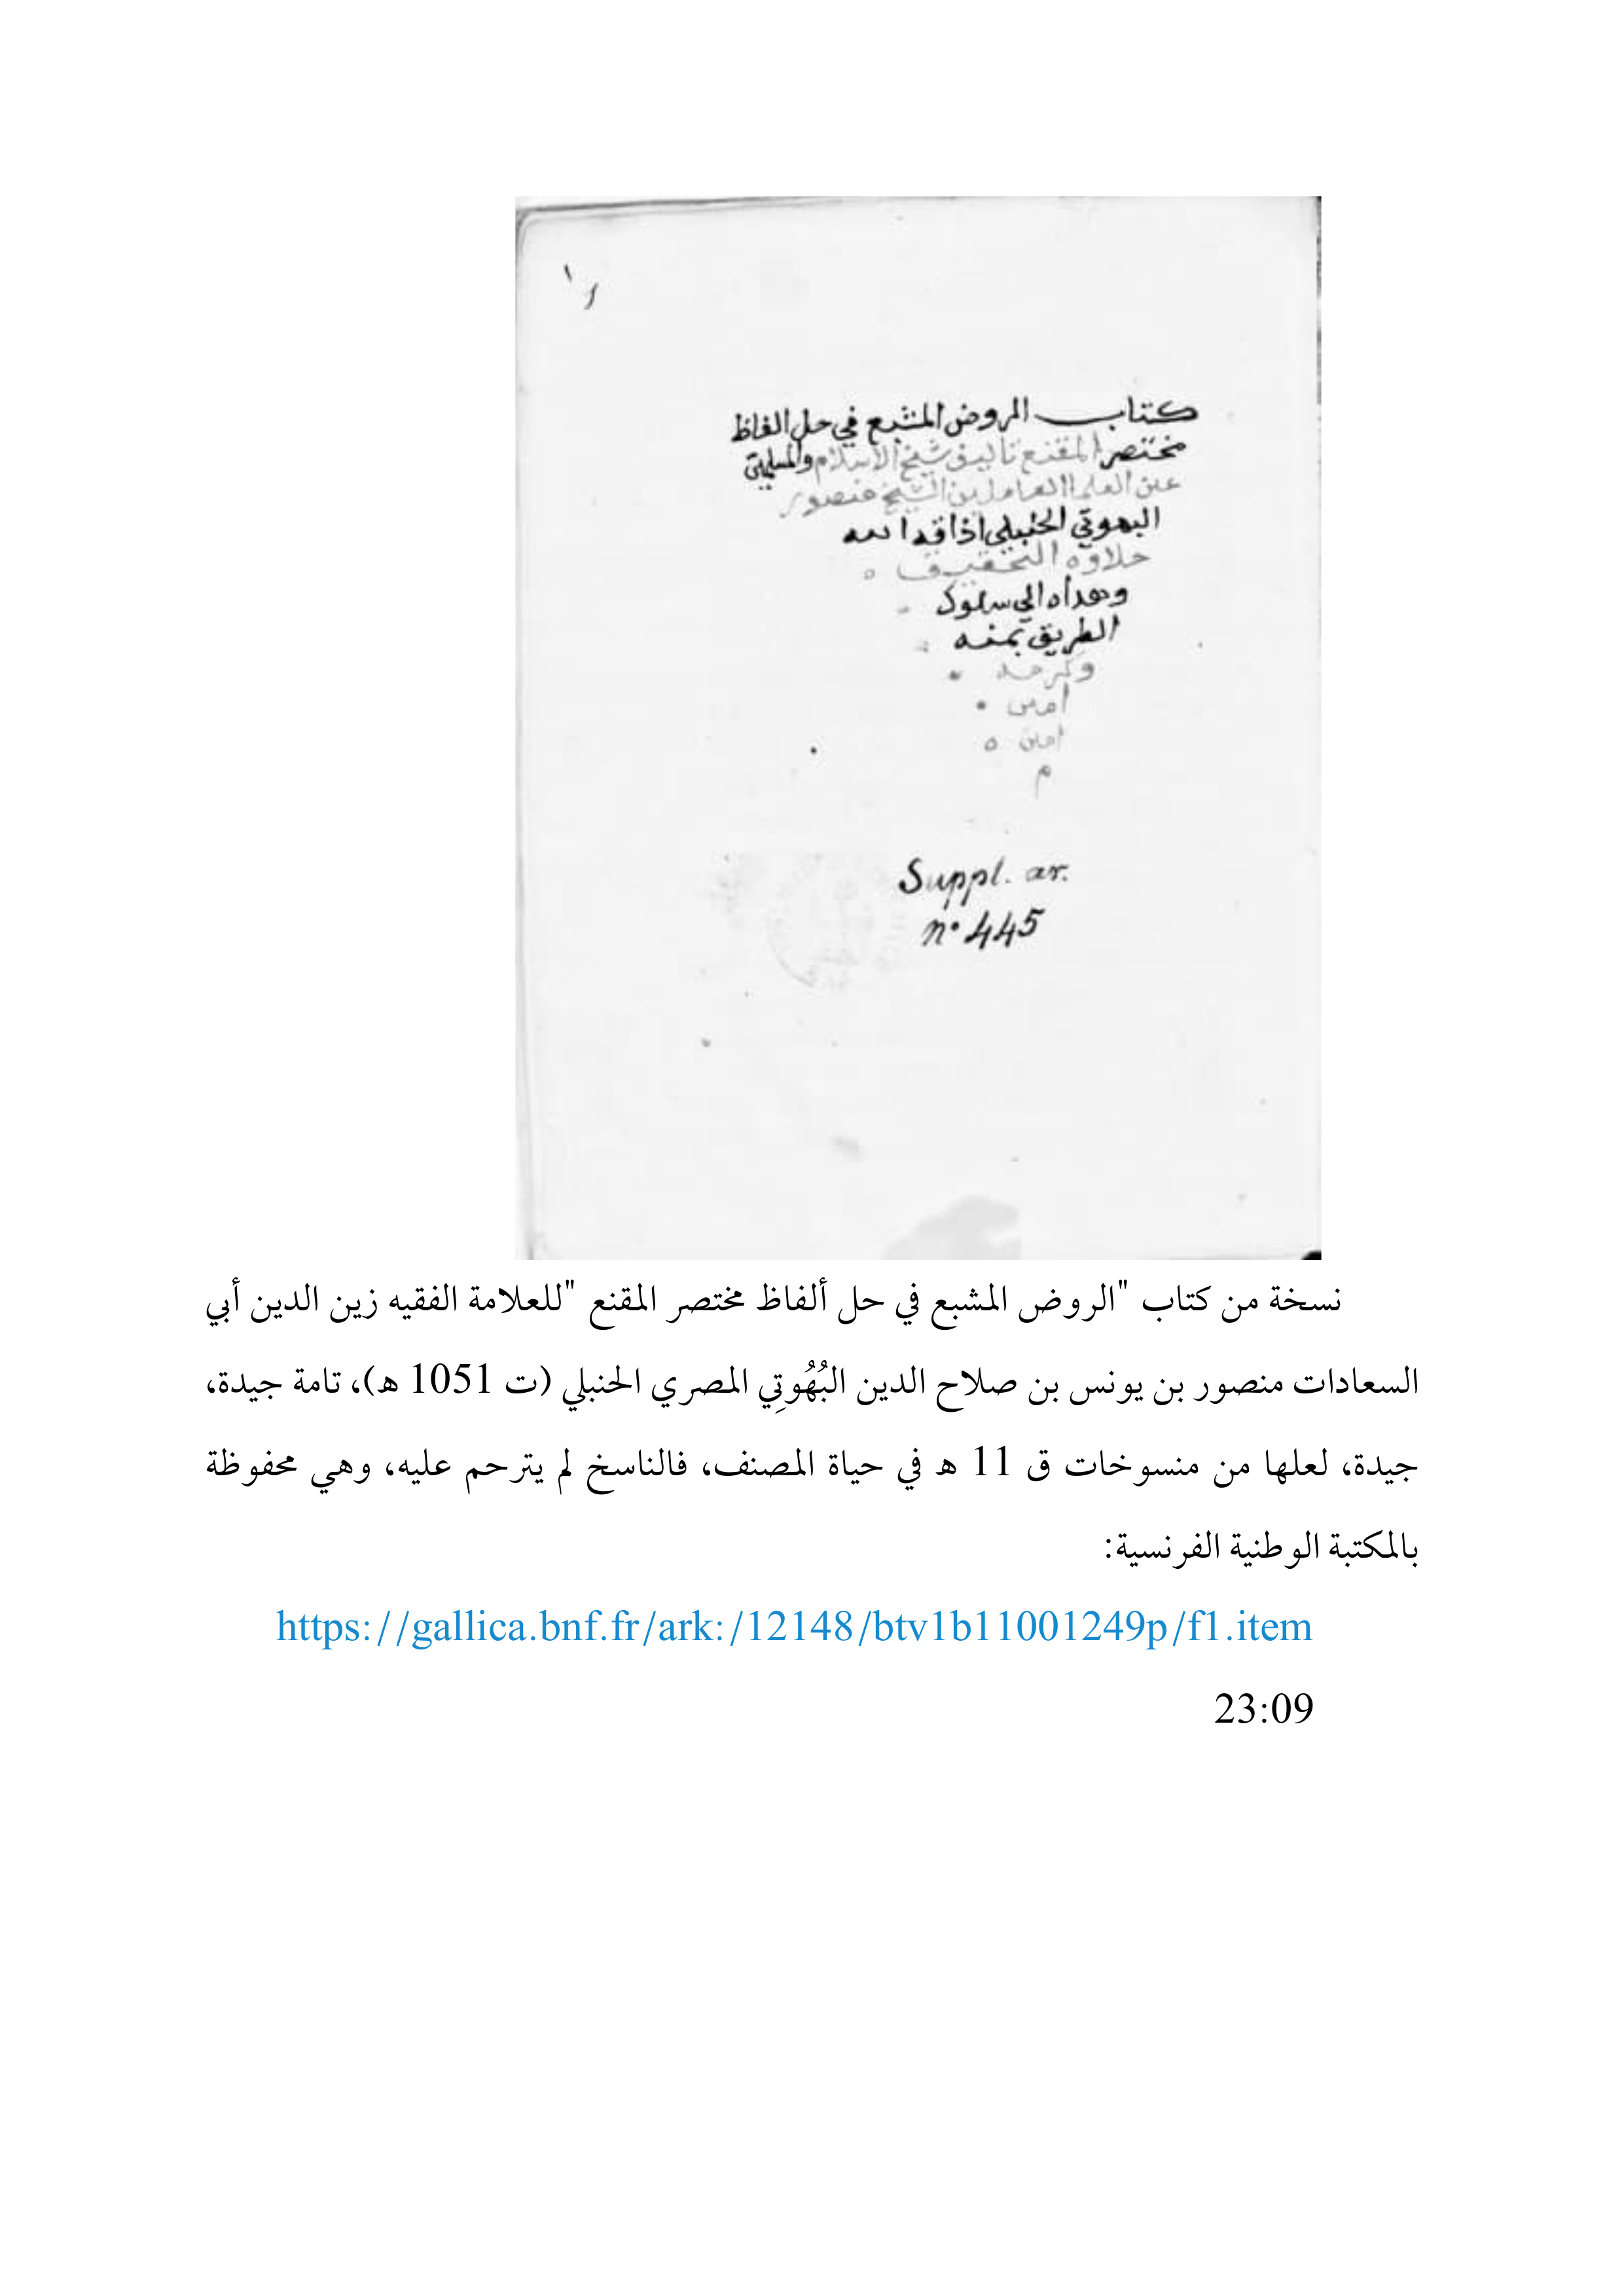 ١
كتاب الروض المشبع في حل الفاظ
مختصر المقنع تاليف شيخ الاسلام والمسلمين
عين العلما العاملين الشيخ منصور
البهوتي الحنبلي اذاقه الله
حلاوة التحقيق
وهداه الي سلوك
الطريق بمنه
وكرمه
امين
امين
م
Suppl. ar.
n° 445
نسخة من كتاب "الروض المشبع في حل ألفاظ مختصر المقنع "للعلامة الفقيه زين الدين أبي
السعادات منصور بن يونس بن صلاح الدين البُهُوتِي المصري الحنبلي (ت 1051 ه)، تامة جيدة،
جيدة، لعلها من منسوخات ق 11 ه في حياة المصنف، فالناسخ لم يترحم عليه، وهي محفوظة
بالمكتبة الوطنية الفرنسية:
https://gallica.bnf.fr/ark:/12148/btv1b11001249p/f1.item
23:09